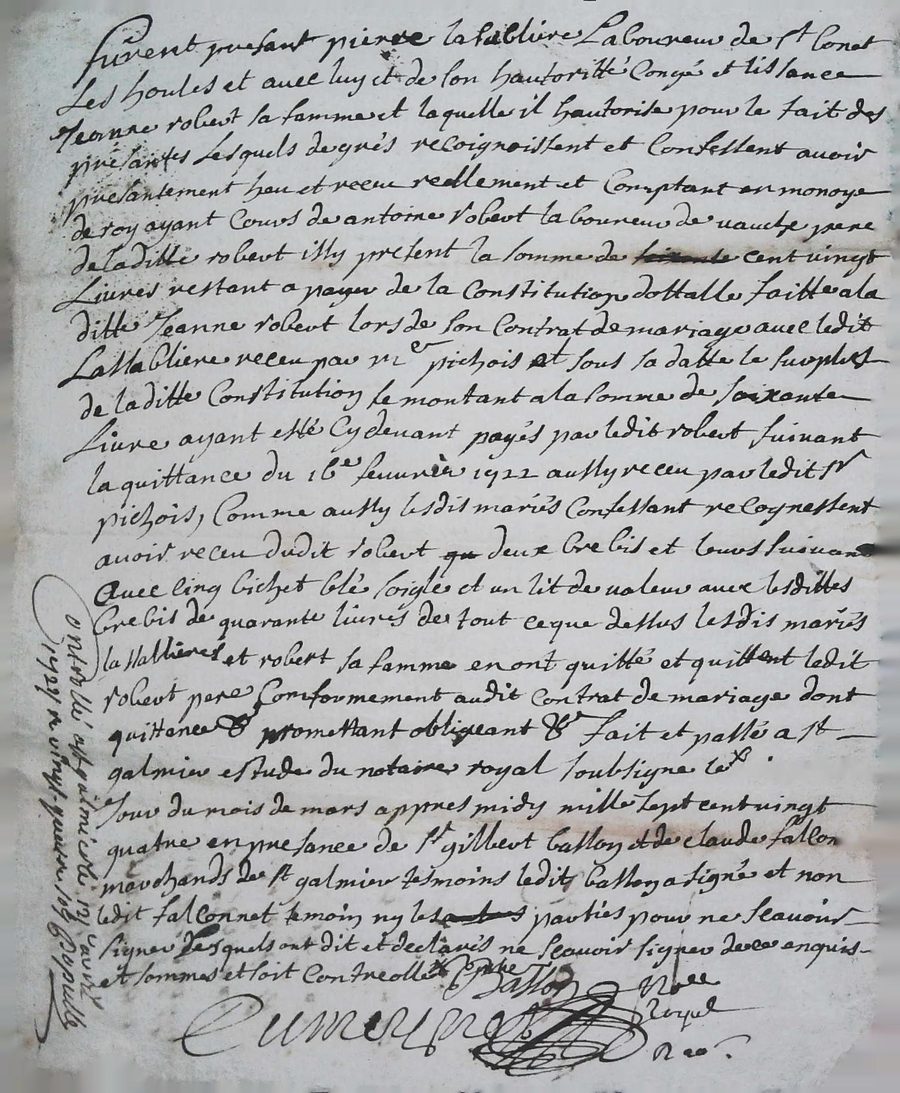 furent presant pierre lastabliere Laboureur de st bonet
Les houles et avec luy et de son hautoritté Congé et lissance
Jeanne robert sa famme et laquelle il hautorise pour le fait des
presantes Lesquels de grés recoignoissent et Confessent avoir
presantement heu et receu reellement et Comptant en monoye
de roy ayant Cours de antoine robert laboureur de vauche pere
de laditte robert issy present la somme de soixante cent vingt
Livres restant a payer de la Constitution dottalle faitte a la
ditte Jeanne robert lors de son Contrat de mariage avec ledit
Lastabliere receu par me pichois et sous sa datte le surplus
de laditte Constitution se montant a la somme de soixante
Livre ayant esté Cy devant payés par ledit robert suivant
la quittance du 16e feuvrier 1722 aussy receu par ledit sr
pichois, Comme aussy lesdis mariés Confessant recognessent
avoir receu dudit robert deux brebis et leurs suivant
avec cinq bichet blé soigle et un lit de valeur avec lesdittes
brebis de quarante livres de tout ce que dessus lesdis mariés
lastablieres et robert sa famme en ont quitté et quittent ledit
robert pere Conformement audit Contrat de mariage dont
quittance &c promettant obligeant &c fait et passé a st
galmier estude du notaire royal soubsigne le xe
Jour du mois de mars appres midy mille sept cent vingt
quatre en presance de sr gilbert basson et de claude falcon
marchands de st galmier tesmoins ledit basson a signé et non
ledit falconnet temoin ny les autres parties pour ne scavoir
signer Lesquels ont dit et declarés ne scavoir signer de ce enquis
et sommes et soit Controllé
Basson
Nore
Royal
Controllé a st galmier le
1724 R vingt quatre sols